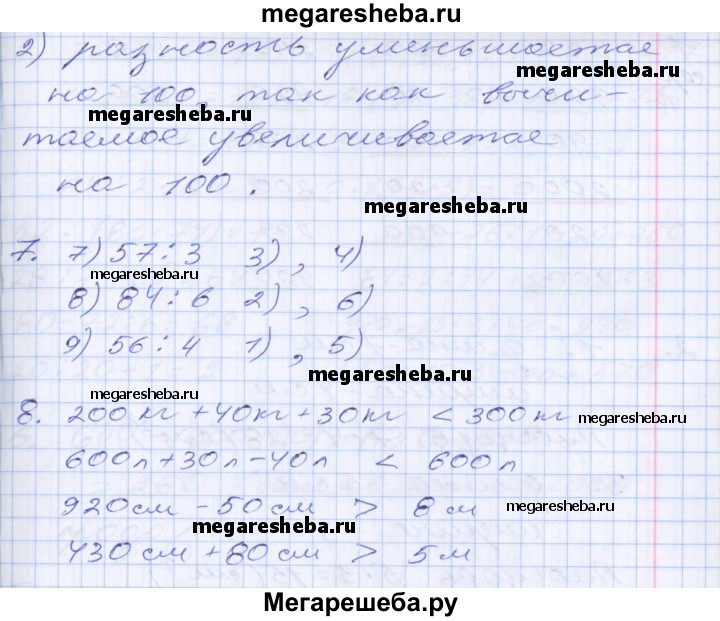 megaresheba.ru
2) разность уменьшается
megaresheba.ru
на 100, так как вычи-
megaresheba.ru
таемое увеличивается
на 100.
megaresheba.ru
7. 7) 57:3 3), 4)
megaresheba.ru
8) 84:6 2), 6)
9) 56:4 1), 5)
megaresheba.ru
megaresheba.ru
8. 200кг + 40кг + 30кг < 300кг
megaresheba.ru
600л + 30л - 40л < 600л
920см - 50см > 8м
megaresheba.ru
megaresheba.ru
430см + 80см > 5м
Мегарешеба.ру